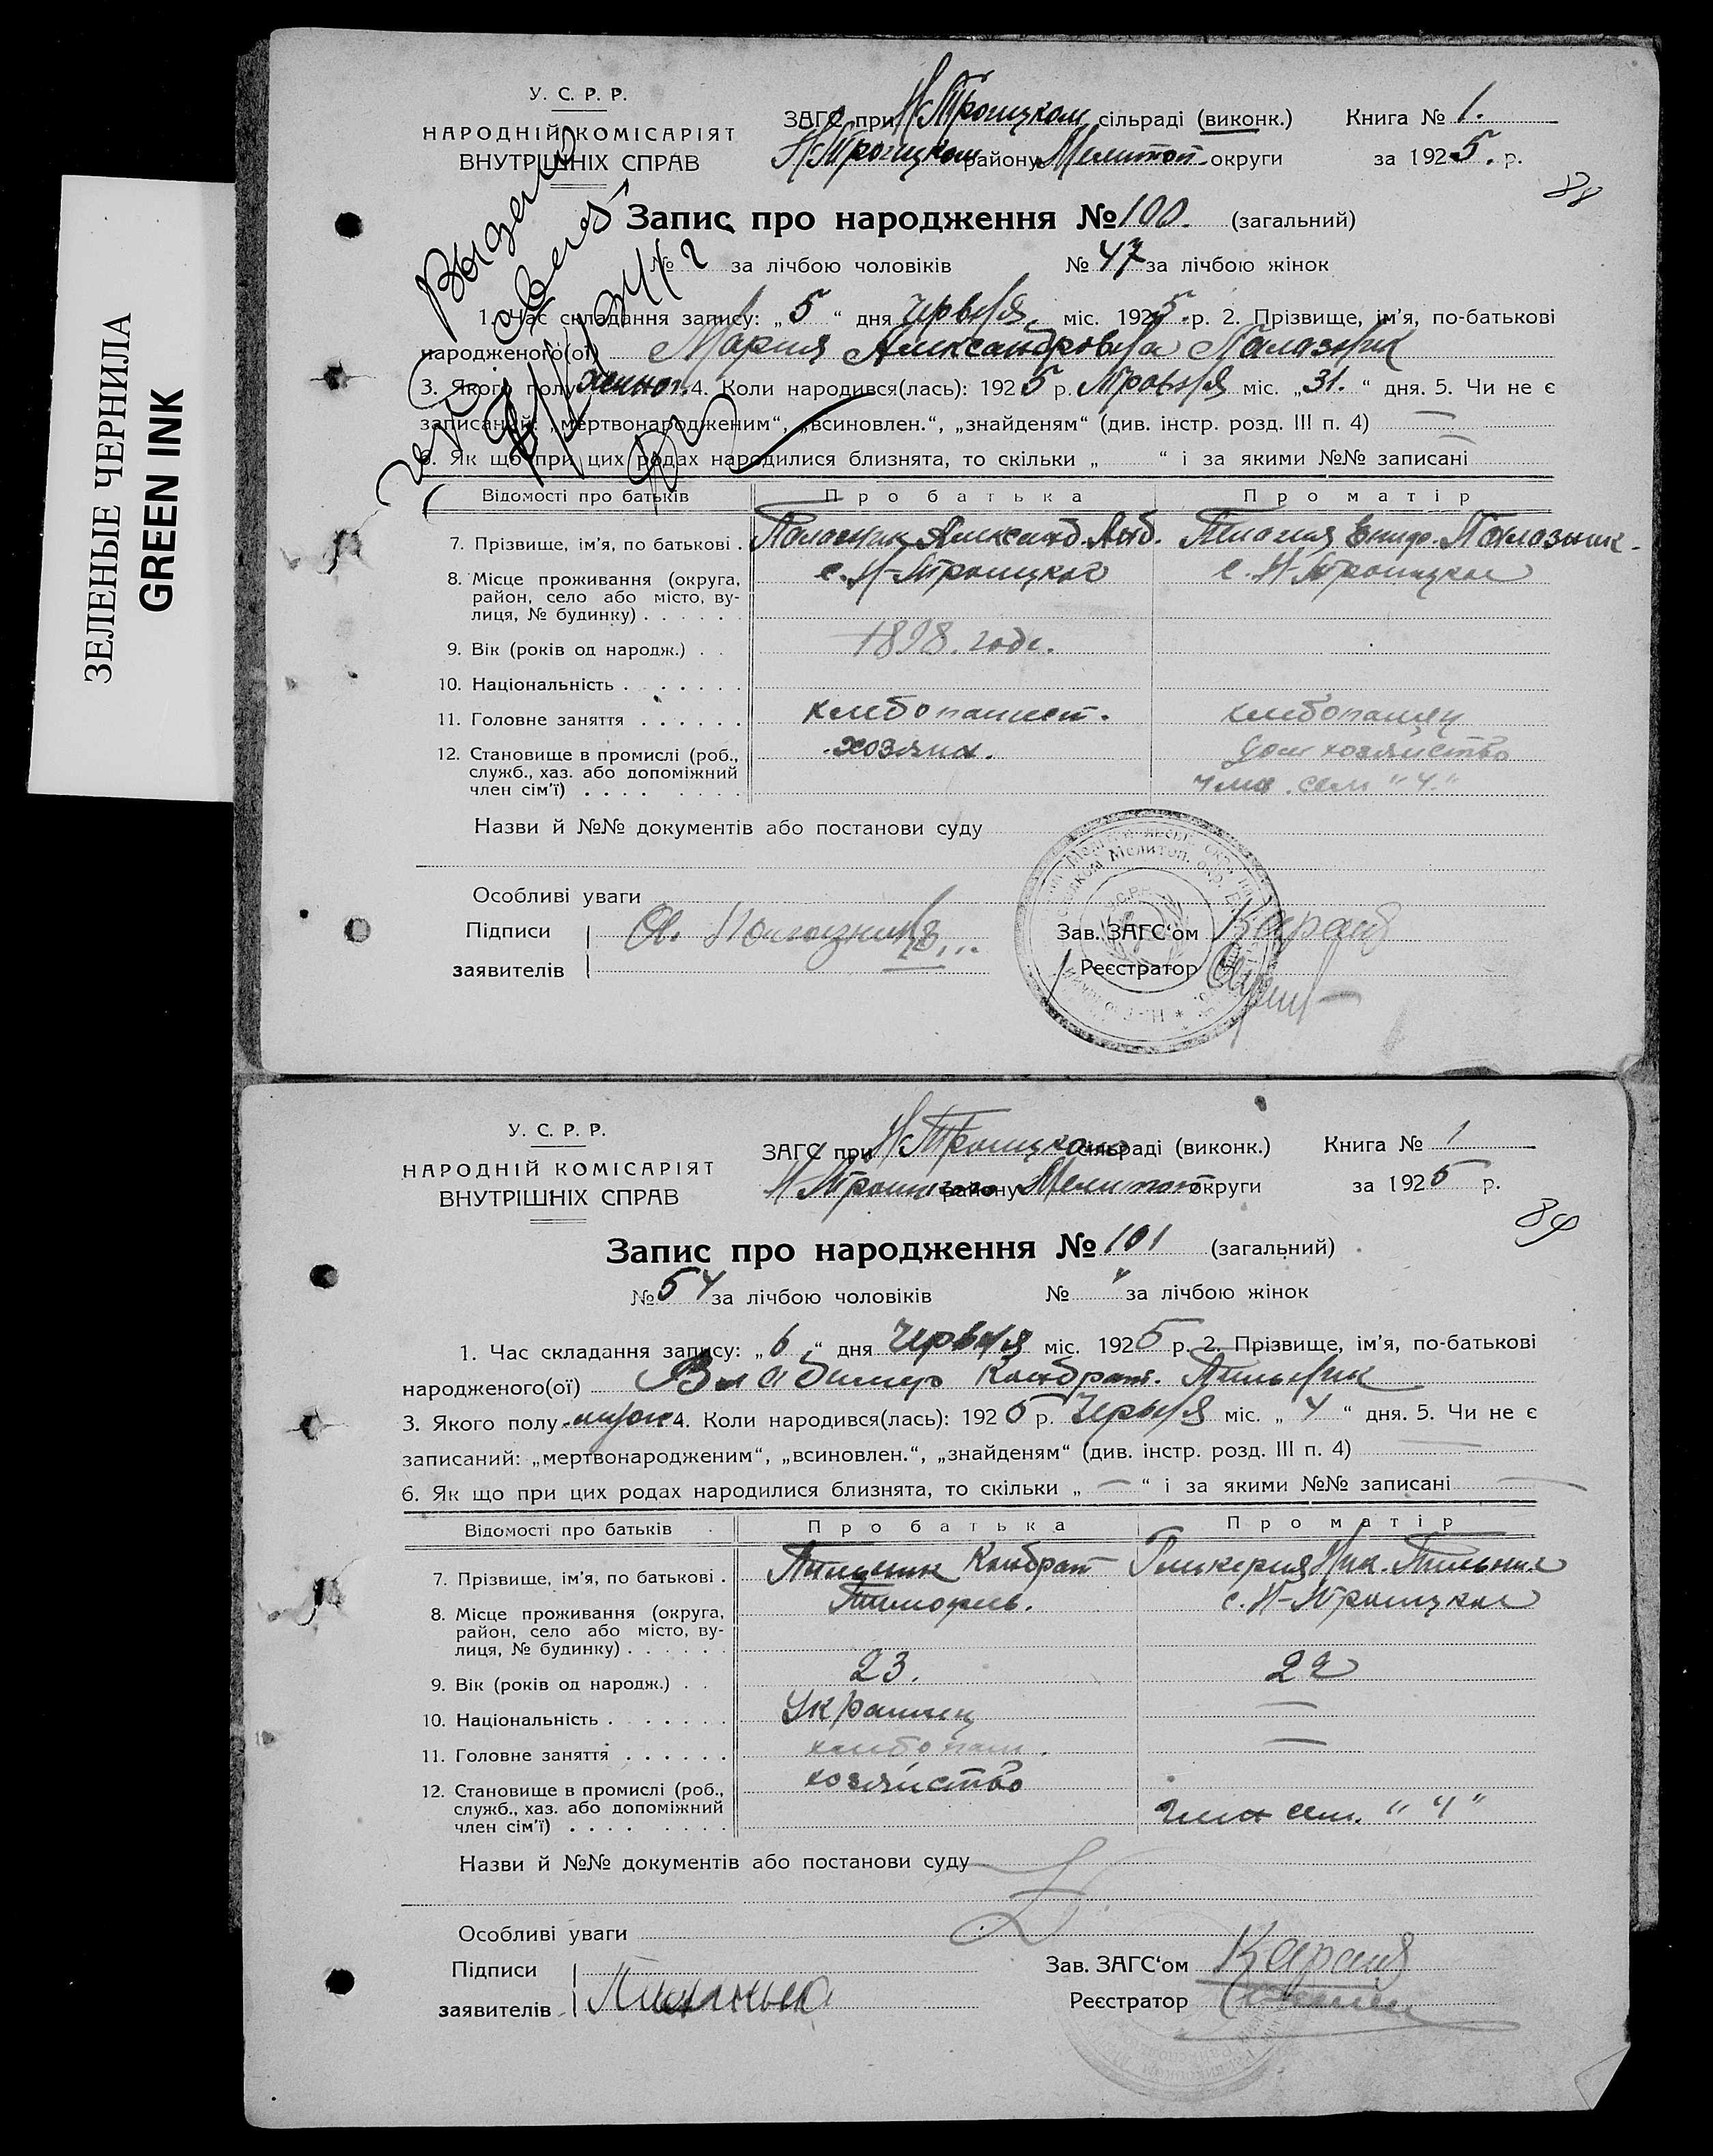 ЗЕЛЕНЫЕ ЧЕРНИЛА
GREEN INK
У. С. Р. Р.
НАРОДНІЙ КОМІСАРІЯТ
ВНУТРІШНІХ СПРАВ
ЗАГС при Н-Троицком сільраді (виконк.) Книга № 1.
Н-Троицком району Мелитоп. округи за 1925. р.
88
Запис про народження № 100. (загальний)
№ " за лічбою чоловіків № 47 за лічбою жінок
1. Час складання запису: „5“ дня Червня міс. 1925 р. 2. Прізвище, ім’я, по-батькові
народженого(ої) Мария Александровна Палазник
3. Якого полу женног. 4. Коли народився(лась): 1925 р. Травня міс. „31.“ дня. 5. Чи не є
записаний: „мертвонародженим“, „всиновлен.“, „знайденям“ (див. інстр. розд. III п. 4) —
6. Як що при цих родах народилися близнята, то скільки „ “ і за якими №№ записані
Відомості про батьків Про батька Про матір
7. Прізвище, ім’я, по батькові . Палазник Александ. Палазник
8. Місце проживання (округа, с. Н-Троицкое с. Н-Троицкое
район, село або місто, ву-
лиця, № будинку) . . . . . .
9. Вік (років од народж.) . . 1898. годе.
10. Національність . . . . . . .
11. Головне заняття . . . . . . хлебопашест. хлебопашец
12. Становище в промислі (роб., хозяин. дом хозяйство
служб., хаз. або допоміжний
член сім’ї) . . . . . . . . член. сем "4"
Назви й №№ документів або постанови суду
Особливі уваги
Підписи А. Палазник Зав. ЗАГС‘ом Караб
заявителів Реєстратор
У. С. Р. Р.
НАРОДНІЙ КОМІСАРІЯТ
ВНУТРІШНІХ СПРАВ
ЗАГС при Н-Троицком сільраді (виконк.) Книга № 1
Н-Троицкого району Мелитоп округи за 1925 р.
89
Запис про народження № 101 (загальний)
№ 54 за лічбою чоловіків № " за лічбою жінок
1. Час складання запису: „6“ дня Червня міс. 1925 р. 2. Прізвище, ім’я, по-батькові
народженого(ої) Владимир Кондрат. Пильник
3. Якого полу мужск 4. Коли народився(лась): 1925 р. Червня міс. „4“ дня. 5. Чи не є
записаний: „мертвонародженим“, „всиновлен.“, „знайденям“ (див. інстр. розд. III п. 4) —
6. Як що при цих родах народилися близнята, то скільки „—“ і за якими №№ записані —
Відомості про батьків Про батька Про матір
7. Прізвище, ім’я, по батькові . Пильник Кондрат Гликерия Ник. Пильник
8. Місце проживання (округа, Тимофеев. с. Н-Троицкое
район, село або місто, ву-
лиця, № будинку) . . . . . .
9. Вік (років од народж.) . . 23. 22
10. Національність . . . . . . . Украинец —
11. Головне заняття . . . . . . хлебопаш. —
12. Становище в промислі (роб., хозяйство
служб., хаз. або допоміжний
член сім’ї) . . . . . . . . член сем. "4"
Назви й №№ документів або постанови суду
Особливі уваги
Підписи Зав. ЗАГС‘ом Караб
заявителів Реєстратор